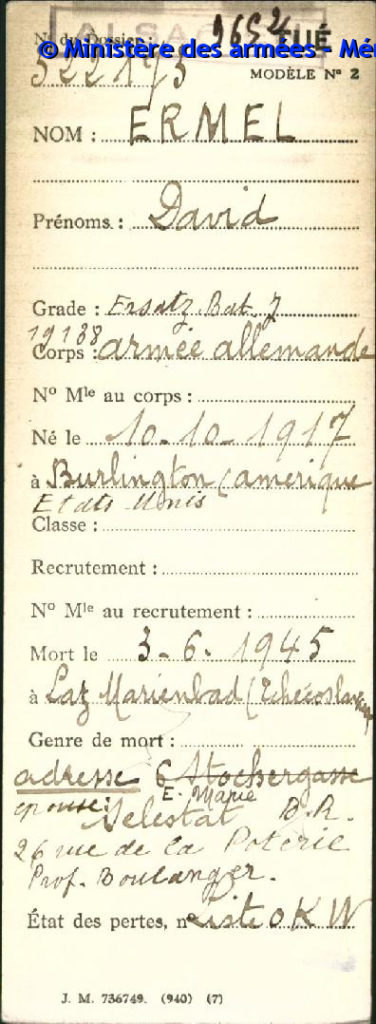 ALSACIEN
Nº du Dossier : 9652 TUÉ
© Ministère des armées - Mé
522175 MODÈLE Nº 2
NOM : ERMEL
Prénoms : David
Grade : Ersatz. Bat. 7
19188
Corps : armée allemande
Nº Mle au corps :
Né le 10-10-1917
à Burlington (amerique
Etats Unis
Classe :
Recrutement :
Nº Mle au recrutement :
Mort le 3-6. 1945
à Laz Marienbad (Tchecoslavaquie
Genre de mort :
adresse 6 Stochergasse
epouse: E. Marie
Selestat B.R.
26 rue de la Poterie
Prof. Boulanger.
État des pertes, nº Liste O K W
J. M. 736749. (940) (7)